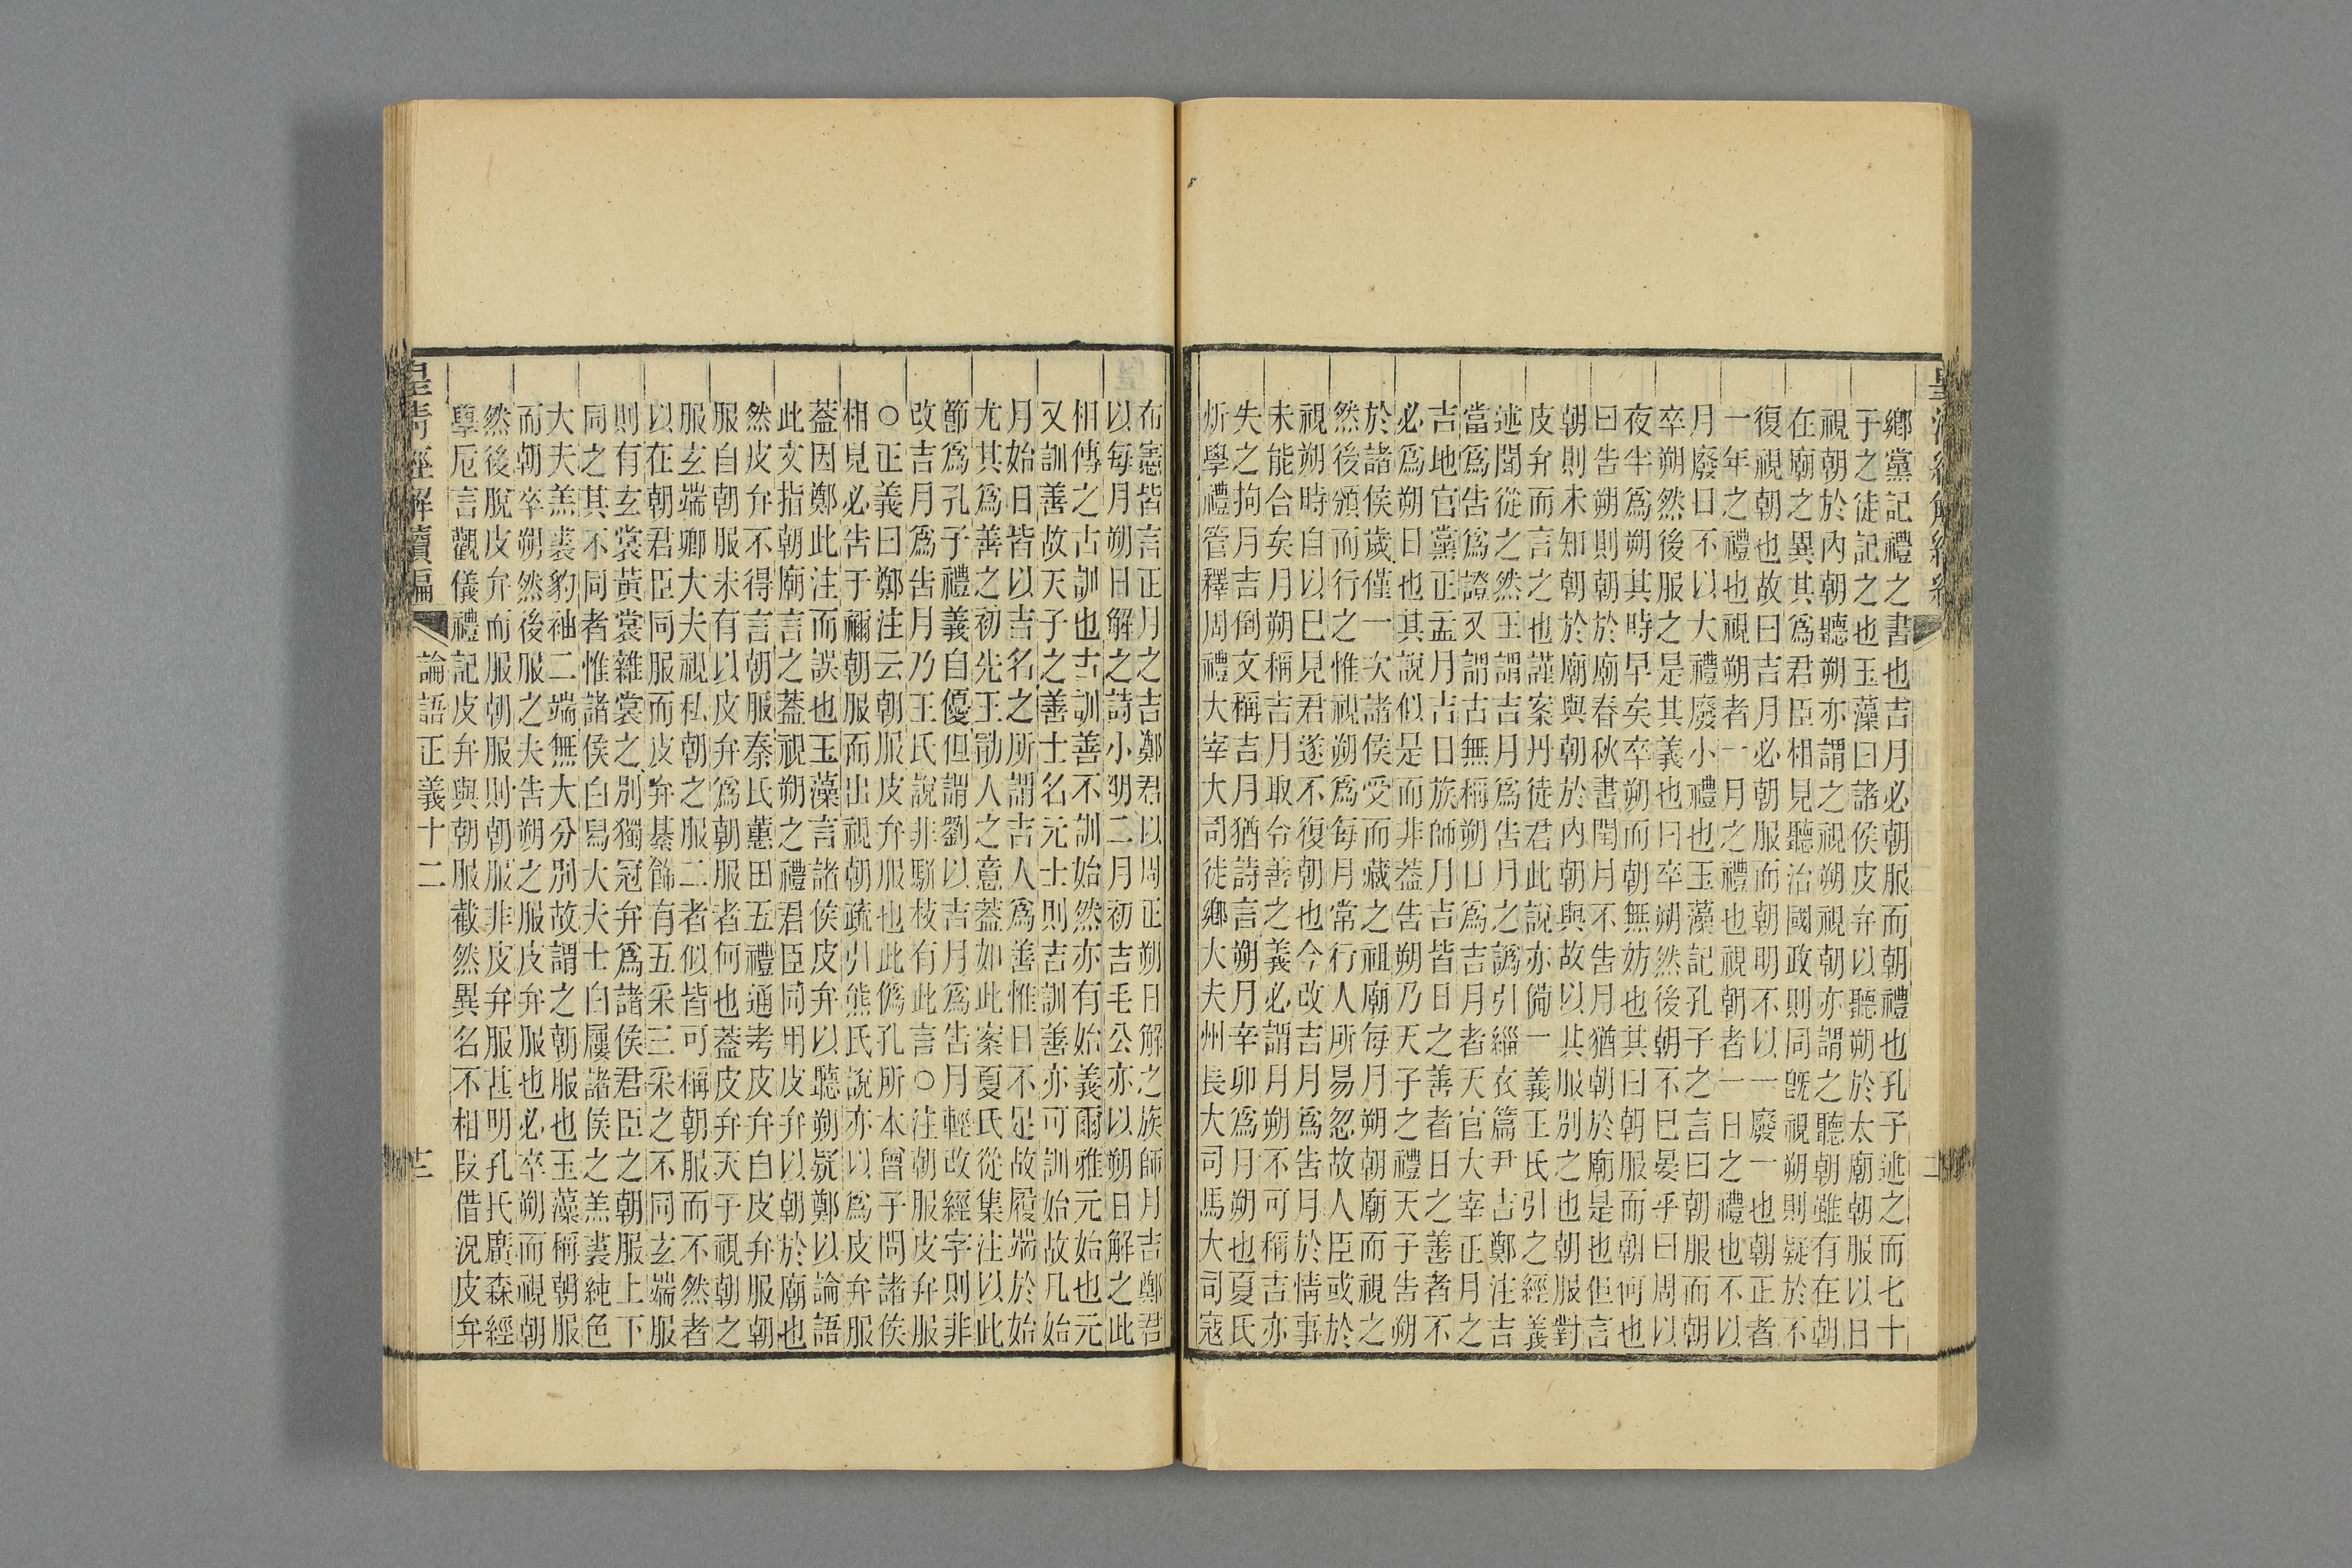 鄉黨記禮之書也吉月必朝服而朝禮也孔子述之而七十
于之徒記之也玉藻曰諸侯皮弁以聽朔於太廟朝服以日
視朝於內朝聽朔亦謂之視朔視朝亦謂之聽朝雖有在朝
在廟之異其爲君臣相見聽治國政則同旣視朔則疑於不
復視朝也故曰吉月必朝服而朝明不以一廢一也朝正者
一年之禮也視朔者一月之禮也視朝者一日之禮也不以
月廢日不以大禮廢小禮也玉藻記孔子之言曰朝服而朝
卒朔然後服之是其義也曰卒朔然後朝不巳晏乎曰周以
夜半爲朔其時早矣卒朔而朝無妨也其曰朝服而朝何也
曰告朔則朝於廟春秋書閏月不告月猶朝於廟是也但言
朝則未知朝於廟與朝於內朝與故以其服別之也朝服對
皮弁而言之也謹案丹徒君此說亦備一義王氏引之經義
述聞從之然王謂吉月爲告月之譌引緇衣篇尹吉鄭注吉
當爲告爲證又謂古無稱朔日爲吉月者天官大宰正月之
吉地官黨正孟月吉日族師月吉皆日之善者日之善者不
必爲朔日也其說似是而非蓋告朔乃天子之禮天子告朔
於諸侯歲僅一次諸侯受而藏之祖廟每月朔朝廟而視之
然後頒而行之惟視朔爲每月常行人所易忽故人臣或於
視朔時自以巳見君遂不復朝也今改吉月爲告月於情事
未能合矣月朔稱吉月取令善之義必謂月朔不可稱吉亦
失之拘月吉倒文稱吉月猶詩言朔月辛卯爲月朔也夏氏
炘學禮管釋周禮大宰大司徒鄉大夫州長大司馬大司寇
布憲皆言正月之吉鄭君以周正朔日解之族師月吉鄭君
以每月朔日解之詩小明二月初吉毛公亦以朔日解之此
相傳之古訓也古訓善不訓始然亦有始義爾雅元始也元
又訓善故天子之善士名元士則吉訓善亦可訓始故凡始
月始日皆以吉名之所謂吉人爲善惟日不足故履端於始
尤其爲善之初先王勖人之意蓋如此案夏氏從集注以此
節爲孔子禮義自優但謂劉以吉月爲告月輕改經字則非
改吉月爲告月乃王氏說非駢枝有此言○注朝服皮弁服
○正義曰鄭注云朝服皮弁服也此僞孔所本曾子問諸侯
相見必告于禰朝服而出視朝疏引熊氏說亦以爲皮弁服
蓋因鄭此注而誤也玉藻言諸侯皮弁以聽朔疑鄭以論語
此文指朝廟言之蓋視朔之禮君臣同用皮弁以朝於廟也
然皮弁不得言朝服秦氏蕙田五禮通考皮弁白皮弁服朝
服自朝服未有以皮弁爲朝服者何也蓋皮弁天子視朝之
服玄端卿大夫視私朝之服二者似皆可稱朝服而不然者
以在朝君臣同服而皮弁綦飾有五采三采之不同玄端服
則有玄裳黃裳雜裳之別獨冠弁爲諸侯君臣之朝服上下
同之其不同者惟諸侯白舄大夫士白屨諸侯之羔裘純色
大夫羔裘豹袖二端無大分別故謂之朝服也玉藻稱朝服
而朝卒朔然後服之夫告朔之服皮弁服也必卒朔而視朝
然後脫皮弁而服朝服則朝服非皮弁服甚明孔氏廣森經
學卮言觀儀禮記皮弁與朝服截然異名不相叚借況皮弁
皇清經解續編 論語正義十二